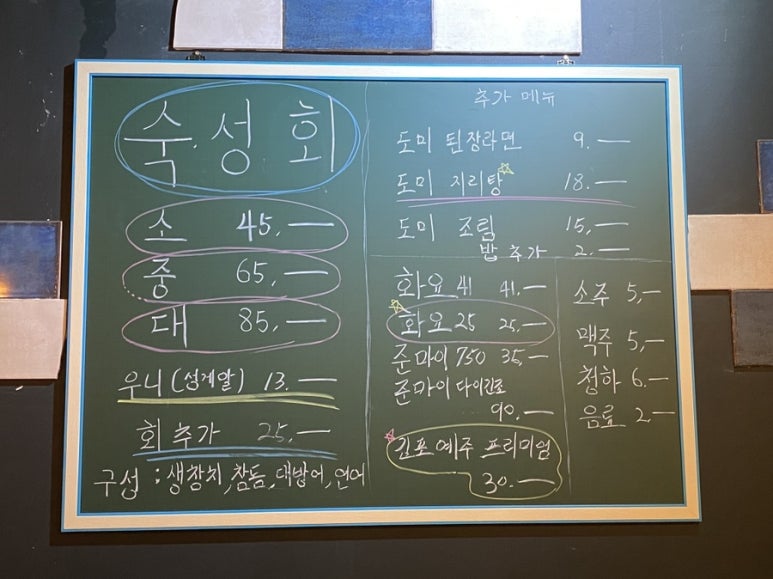 숙성회
소 45.—
중 65.—
대 85.—
우니(성게알) 13.—
회 추가 25.—
구성 : 생참치, 참돔, 대방어, 연어
추가 메뉴
도미 된장라면 9.—
도미 지리탕 18.—
도미 조림 15.—
밥 추가 2.—
화요 41 41.—
화요 25 25.—
준마이 750 35.—
준마이 다이긴죠
90.—
김포예주 프리미엄
30.—
소주 5,—
맥주 5,—
청하 6.—
음료 2—